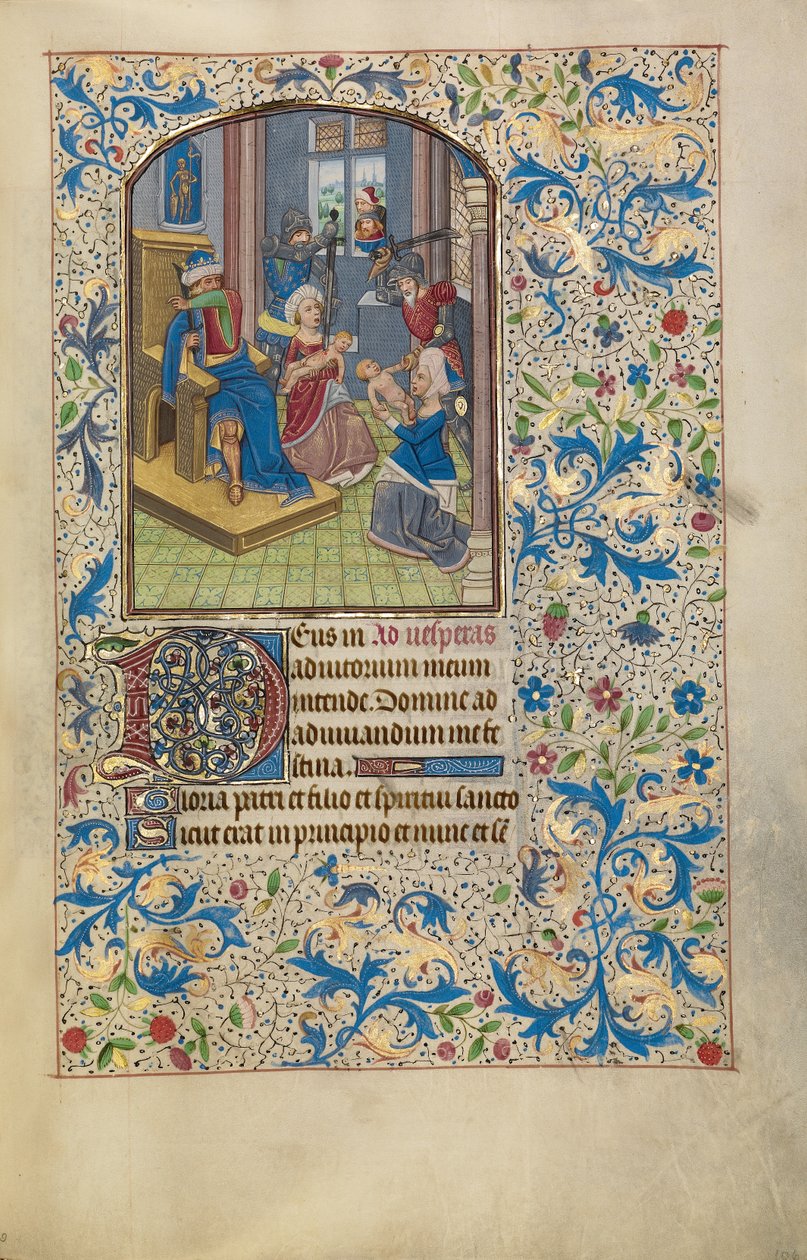 Deus in Ad uesperas
adiutorium meum
intende. Domine ad
adiuuandum me fe
stina.
Gloria patri et filio et spiritui sancto
Sicut erat in principio et nunc et sē